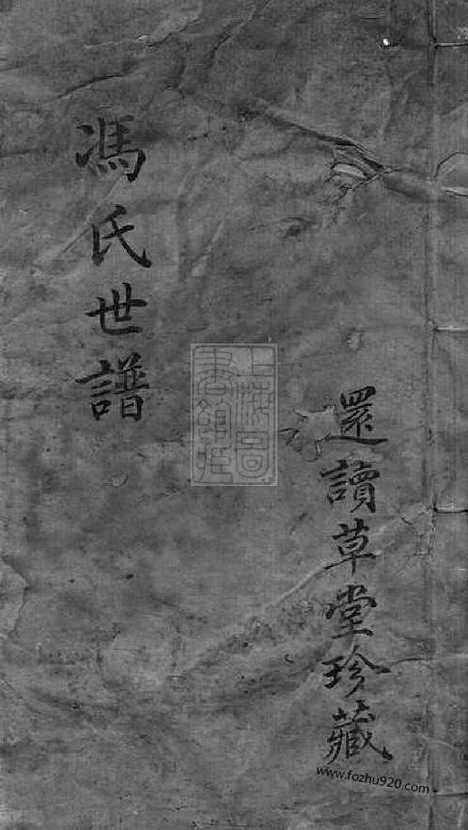 還讀草堂珍藏
馮氏世譜
上海圖書館藏
www.fozhu920.com